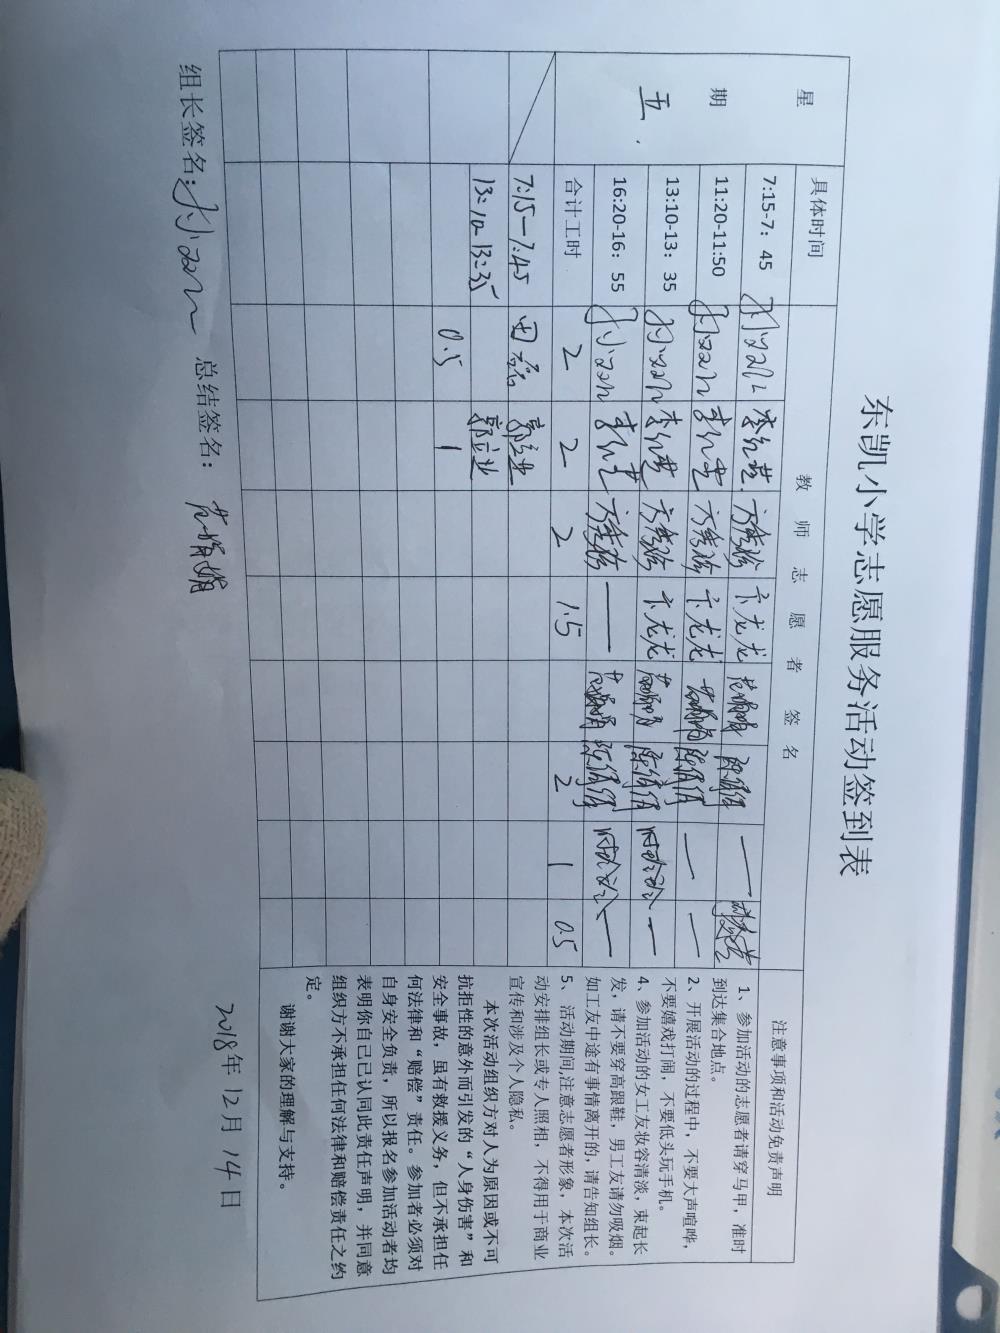 东凯小学志愿服务活动签到表
星期 具体时间 教师志愿者签名 注意事项和活动免责声明
五
7:15-7：45 李红艳 方秀珍 卞龙龙 —
11:20-11:50 李红艳 方秀珍 卞龙龙 — —
13:10-13：35 李红艳 方秀珍 卞龙龙 陈倩倩 —
16:20-16：55 李红艳 方秀珍 — 陈倩倩 —
合计工时 2 2 2 1.5 2 1 0.5
7:15—7:45 田磊 郭立业
13:10-13:35 郭立业
0.5 1
1、参加活动的志愿者请穿马甲，准时
到达集合地点。
2、开展活动的过程中，不要大声喧哗，
不要嬉戏打闹，不要低头玩手机。
4、参加活动的女工友妆容清淡，束起长
发，请不要穿高跟鞋，男工友请勿吸烟。
如工友中途有事情离开的,请告知组长。
5、活动期间,注意志愿者形象，本次活
动安排组长或专人照相，不得用于商业
宣传和涉及个人隐私。
本次活动组织方对人为原因或不可
抗拒性的意外而引发的“人身伤害”和
安全事故，虽有救援义务，但不承担任
何法律和“赔偿”责任。参加者必须对
自身安全负责，所以报名参加活动者均
表明你自己已认同此责任声明，并同意
组织方不承担任何法律和赔偿责任之约
定。
谢谢大家的理解与支持。
组长签名： 总结签名：
2018年12月14日